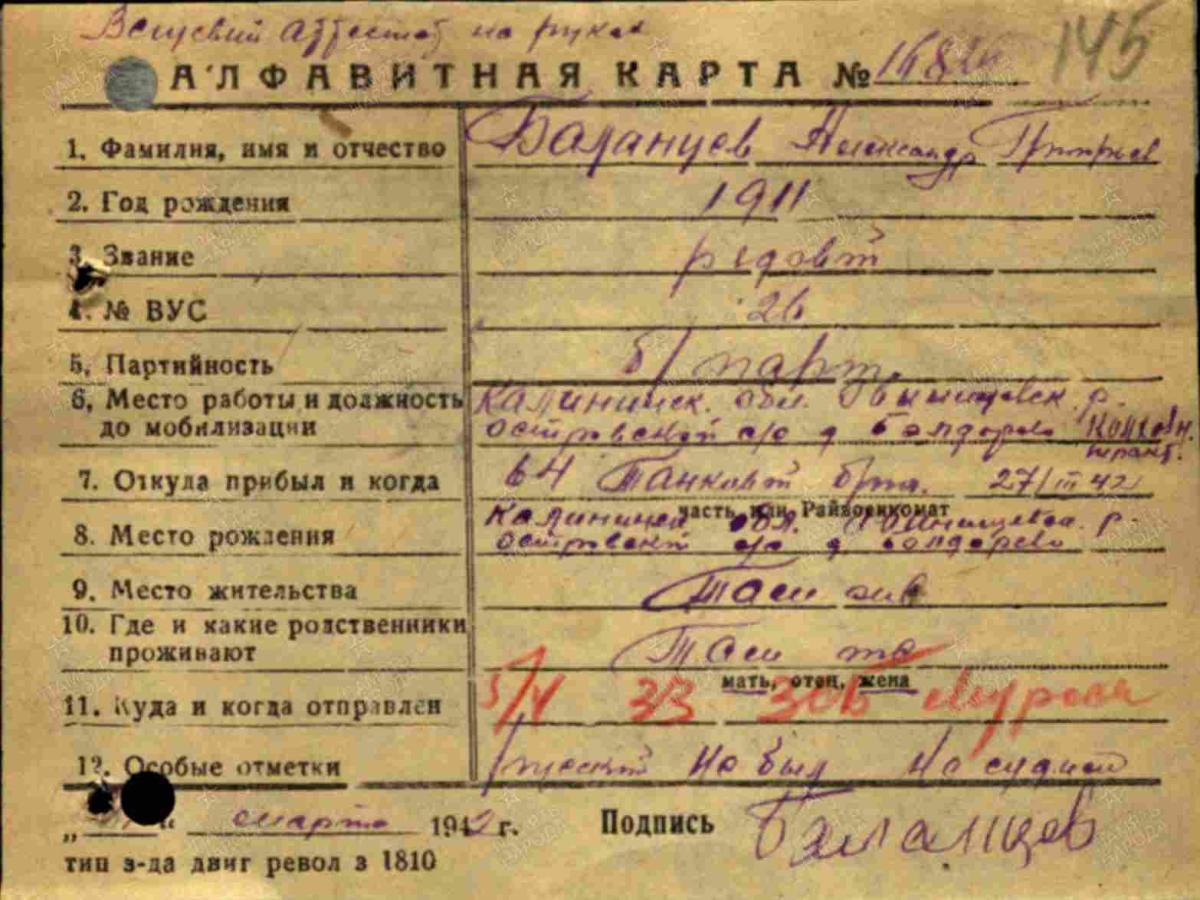 Вещевий аттестат на руках
145
АЛФАВИТНАЯ КАРТА №
1. Фамилия, имя и отчество Баланцев Александр
2. Год рождения 1911
3. Звание рядовой
4. № ВУС 26
5. Партийность б/парт.
6. Место работы и должность Калининск. обл. р.
до мобилизации Островской с/с д Болдорево
7. Откуда прибыл и когда 64 Танковой бриг. 27/III 42
часть или Райвоенкомат
Калининск обл. р.
8. Место рождения
Островской с/с д Болдорево
9. Место жительства Там
10. Где и какие родственники
проживают Там же
мать, отец, жена
11. Куда и когда отправлен 5/4 33
12. Особые отметки русский Не был Не судим
„ “ марта 1942 г. Подпись Баланцев
тип з-да двиг револ з 1810